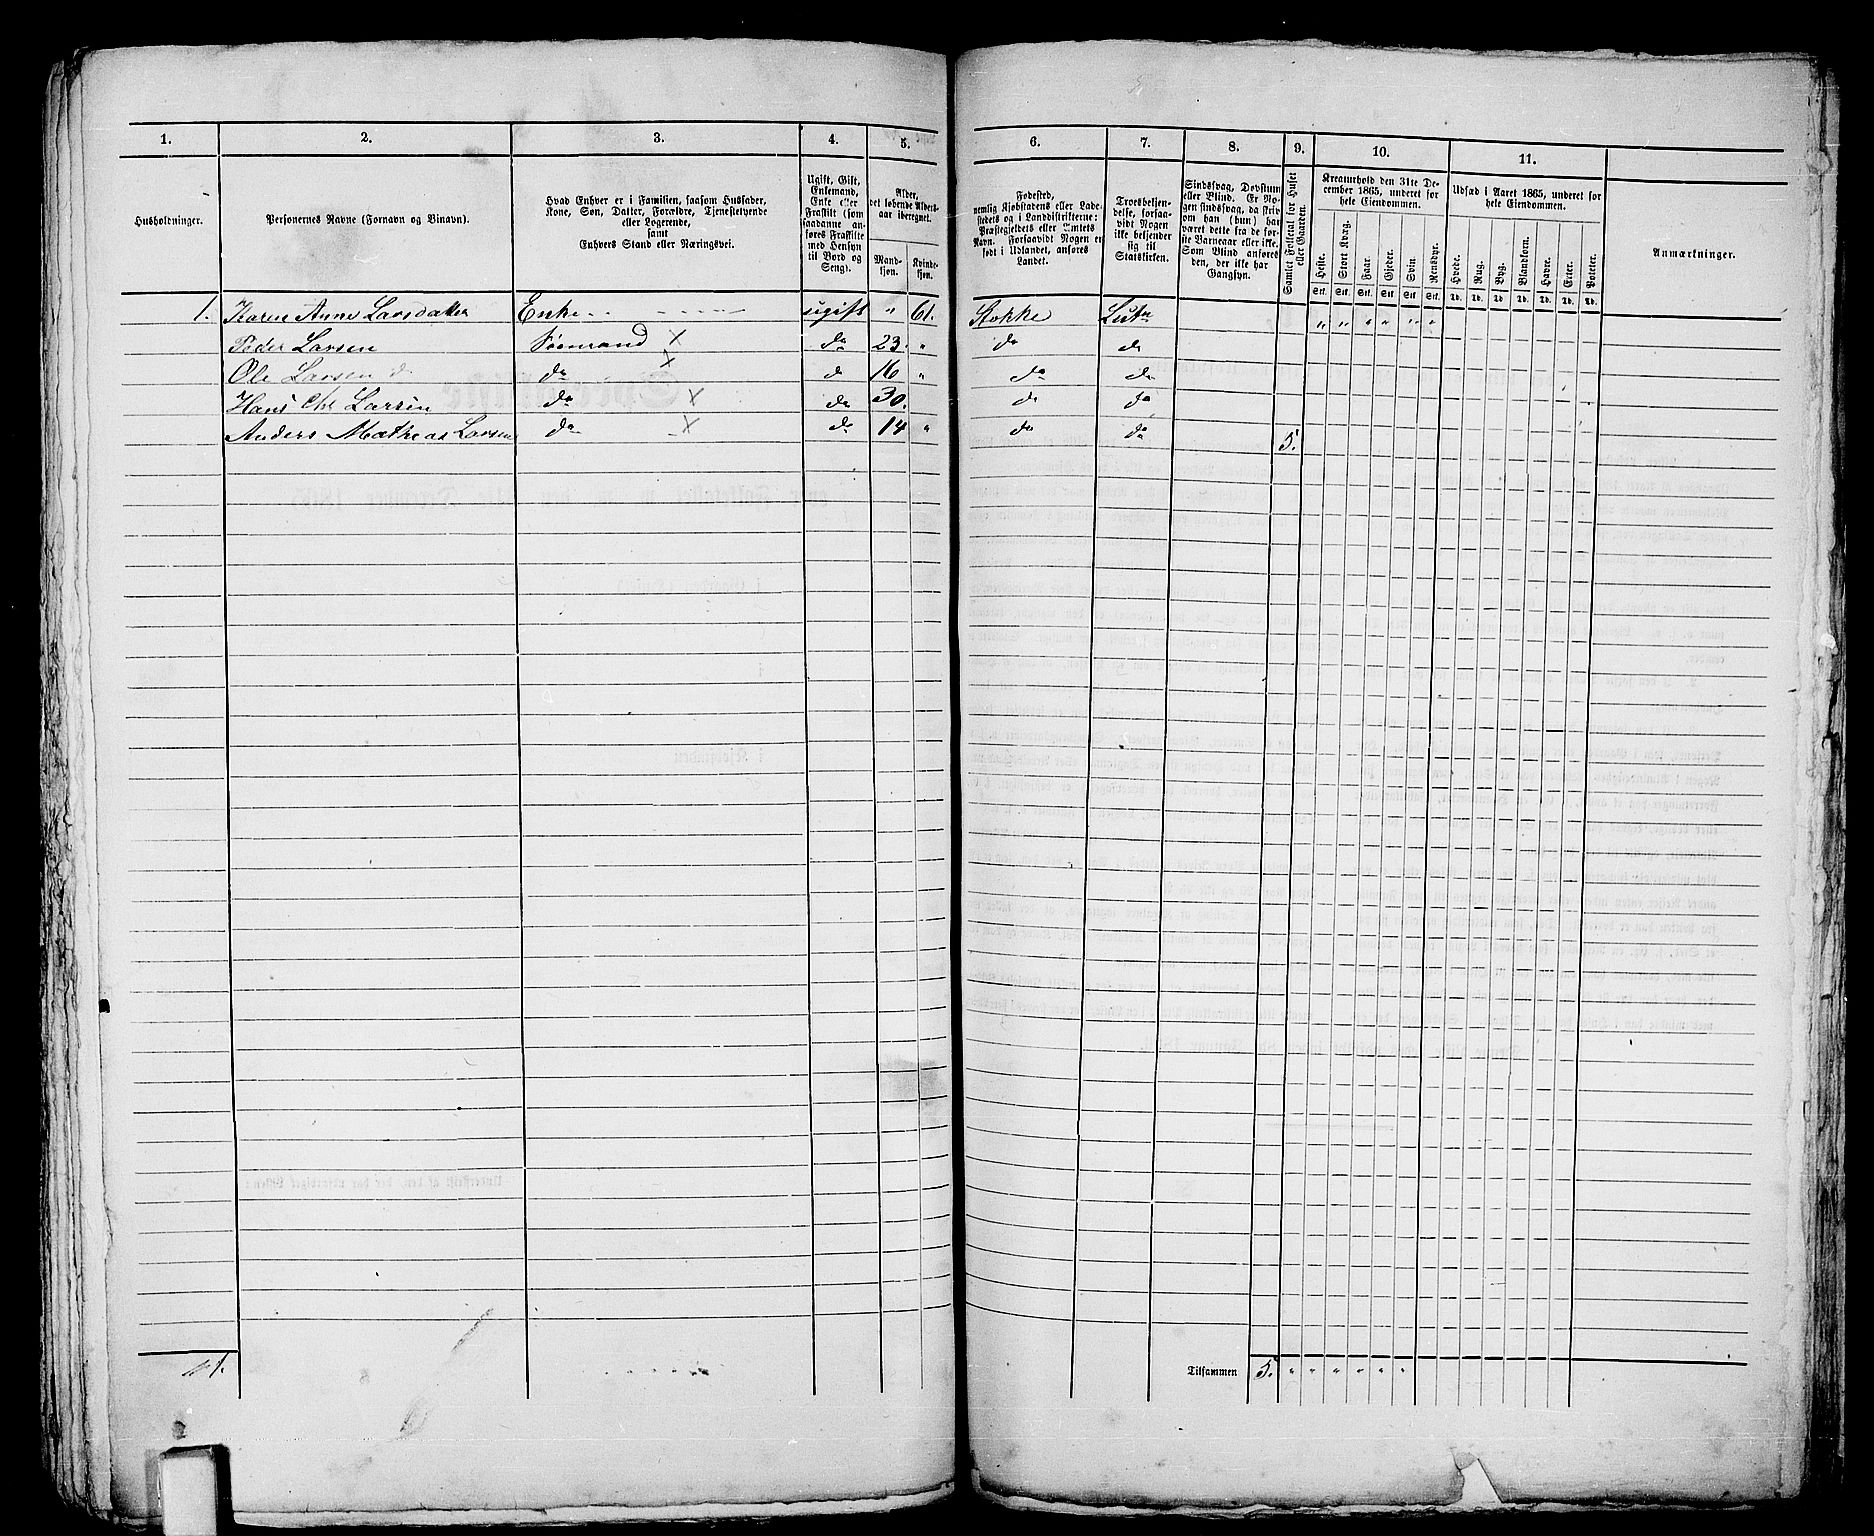 1. 2. 3. 4. 5. 6. 7. 8. 9. 10. 11.
Husholdninger.
Personernes Navne (Fornavn og Binavn).
Hvad Enhver er i Familien, saasom Husfader,
Kone, Søn, Datter, Forældre, Tjenestetyende
eller Logerende,
samt
Enhvers Stand eller Næringsvei.
Ugift, Gift,
Enkemand,
Enke eller
Fraskilt (som
saadanne an-
føres Fraskilte
med Hensyn
til Bord og
Seng).
Alder,
det løbende Alders-
aar iberegnet.
Mand-
kjøn.
Kvinde-
kjøn.
Fødested,
nemlig Kjøbstadens eller Lade-
stedets og i Landdistrikterne:
Præstegjeldets eller Amtets
Navn. Forsaavidt Nogen er
født i Udlandet, anføres
Landet.
Troesbekjen-
delse, forsaa-
vidt Nogen
ikke bekjender
sig til
Statskirken.
Sindssvag, Døvstum
eller Blind. Er No-
gen sindssvag, da skriv
om han (hun) har
været dette fra de før-
ste Barneaar eller ikke.
Som Blind anføres
den, der ikke har
Gangsyn.
Samlet Folketal for Huset
eller Gaarden.
Kreaturhold den 31te De-
cember 1865, underet for
hele Eiendommen.
Heste. Stort Kvæg. Faar. Gjeder. Svin. Rensdyr.
Stk. Stk. Stk. Stk. Stk. Stk.
Udsæd i Aaret 1865, underet for
hele Eiendommen.
Hvede. Rug. Byg. Blandkorn. Havre. Erter. Poteter.
Td. Td. Td. Td. Td. Td. Td.
Anmærkninger.
1. Karen Anne Larsdatter Enke ugift " 61. Stokke Luth " " " " " "
Peder Larsen Sømand X do 23. " do do
Ole Larsen do X do 16 " do do
Hans Chr Larsen do X do 30. do do
Anders Mathias Larsen do X do 14 " do do 5.
1.
Tilsammen 5. " " " " " "